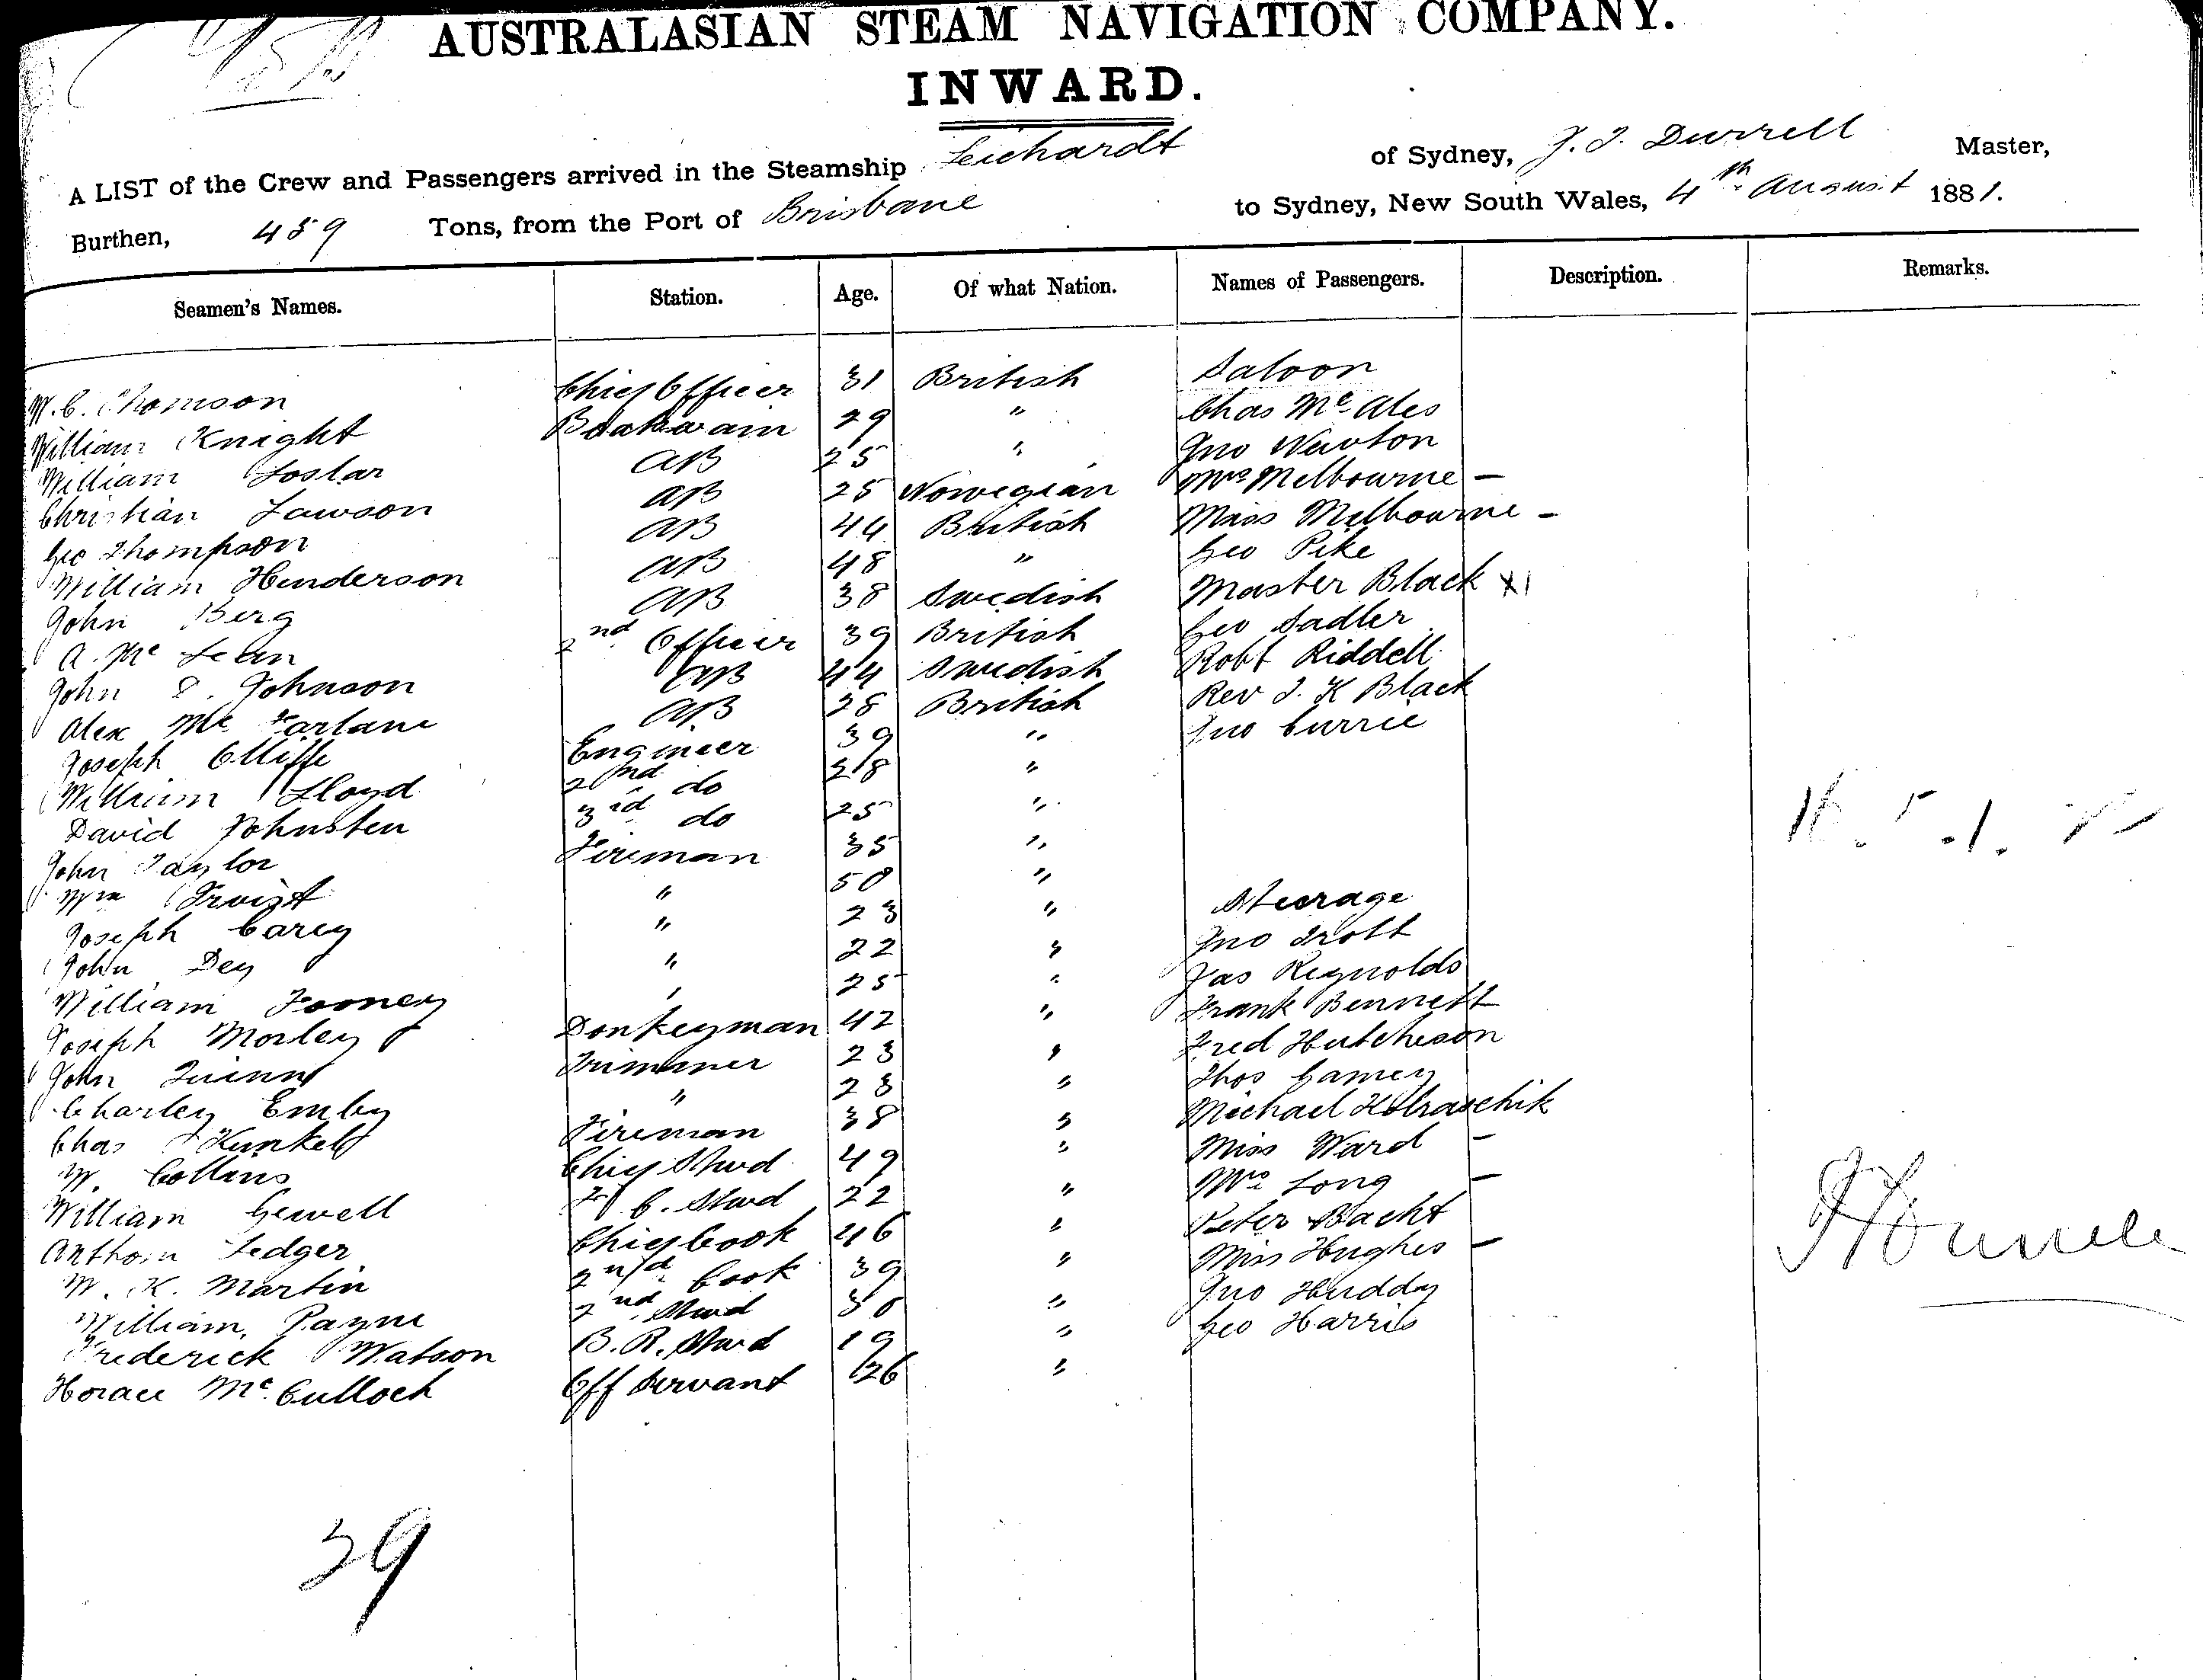 AUSTRALASIAN STEAM NAVIGATION COMPANY.
INWARD.
A LIST of the Crew and Passengers arrived in the Steamship Leichardt of Sydney, J. T. Durrell Master,
Burthen, 459 Tons, from the Port of Brisbane to Sydney, New South Wales, 4th August 1881.
Seamen's Names. Station. Age. Of what Nation. Names of Passengers. Description. Remarks.
W. C. Thomson Chief Officer 31 British Saloon
William Knight Boatswain 29 " Chas McAles
William Soslar AB 25 " Jno Newton
Christian Lawson AB 25 Norwegian Mrs Melbourne —
Geo Thompson AB 44 British Miss Melbourne -
William Henderson AB 48 " Geo Pike
John Berg AB 38 Swedish Master Black X1
A. McLean 2nd Officer 39 British Geo Sadler
John P. Johnson AB 44 Swedish Robt Riddell
Alex McFarlane AB 28 British Rev J. K Black
Joseph Olliffe Engineer 39 " Jno Currie
William Lloyd 2nd do 28 "
David Johnsten 3rd do 25 "
John Taylor Fireman 35 "
Wm " 50 " Steerage
Joseph Carey " 23 " Jno Trott
John Dey " 22 " Jas Reynolds
William Toomey " 25 " Frank Bennett
Joseph Morley Donkeyman 42 " Fred Hutcheson
John Quinn Trimmer 23 " Thos Gamey
Charley Emby " 23 " Michael
Chas Kunkel Fireman 38 " Miss Ward —
W. Collins Chief Stwd 49 " Mrs Long —
William Gewell F. C. Stwd 22 " Peter Bacht
Anthony Ledger Chief Cook 46 " Miss Hughes —
W. K. Martin 2nd Cook 39 " Jno Huddy
William Payne 2nd Stwd 30 " Geo Harris
Frederick Watson B. R. Stwd 19 "
Horace McCulloch Off Servant 26 "
39